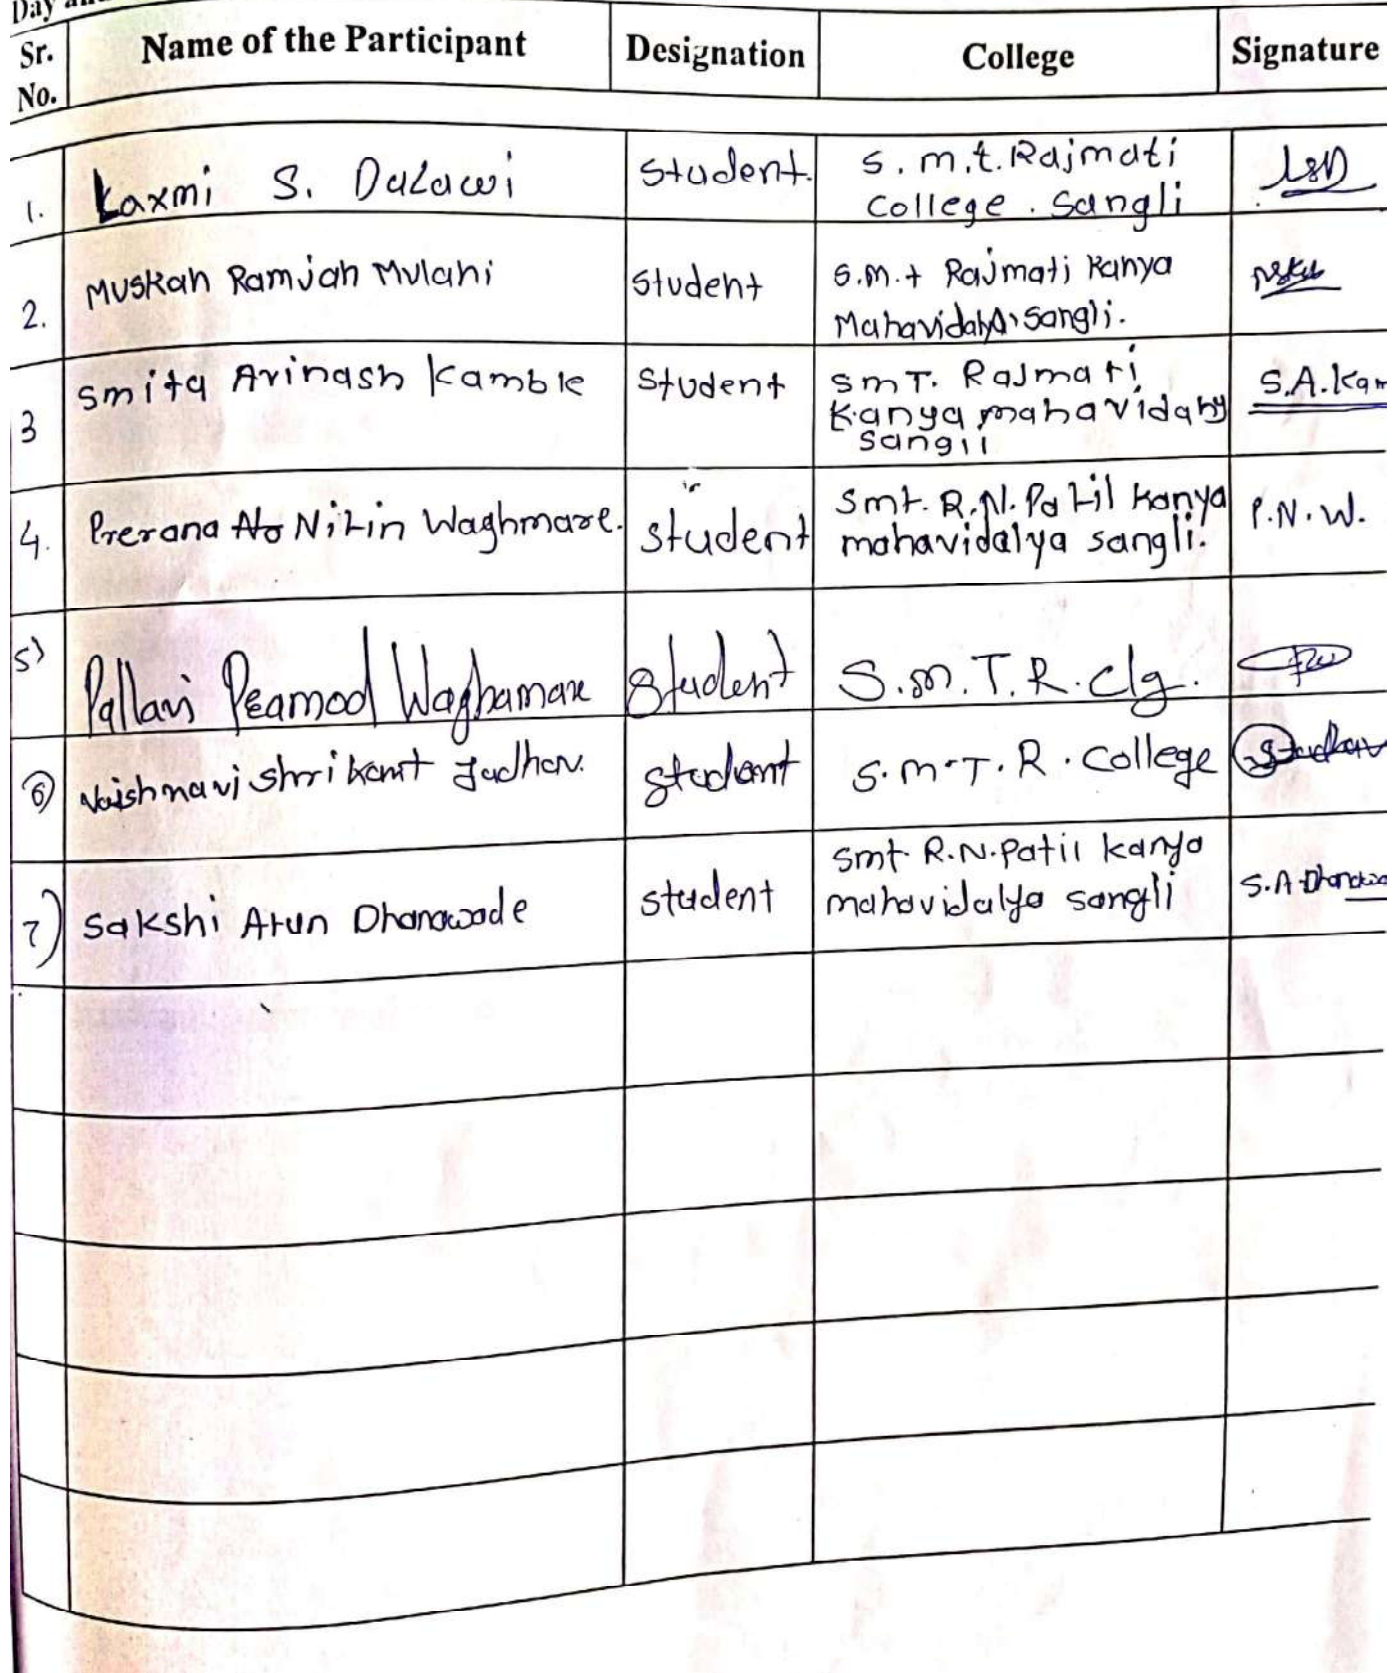 Day
Sr. No. Name of the Participant Designation College Signature
1. Laxmi S. Dalawi Student. S.m.t. Rajmati
College. Sangli
2. Muskan Ramjan Mulani student S.m.t Rajmati Kanya
Mahavidalya sangli.
3 Smita Avinash Kamble Student SmT. Rajmati
Kanya mahavidaly S.A.Kam
sangli
4. Prerana Nitin Waghmare. student Smt. R.N. Patil Kanya P.N.W.
mahavidalya sangli.
5) Pallavi Peamod Waghamare Student S.m.T.R. clg.
6) Vaishnavi Shrikant Jadhav. student S.m.T.R. College
7) Sakshi Arun Dhanawade student Smt. R.N.Patil kanya
mahavidalya sangli S.A